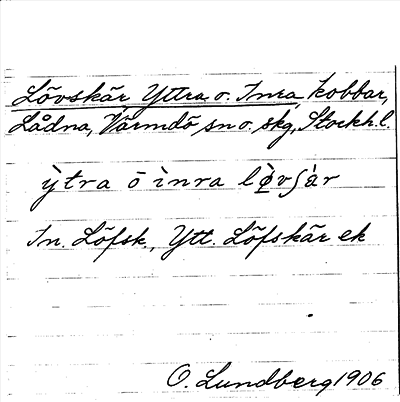 Lövskär, Yttra o. Inra, kobbar,
Lådna, Värmdö sn o. skg, Stockh. l.
ỳtra ō ìnra lø̀vʃàr
In. Löfsk., Ytt. Löfskär ek
O. Lundberg 1906